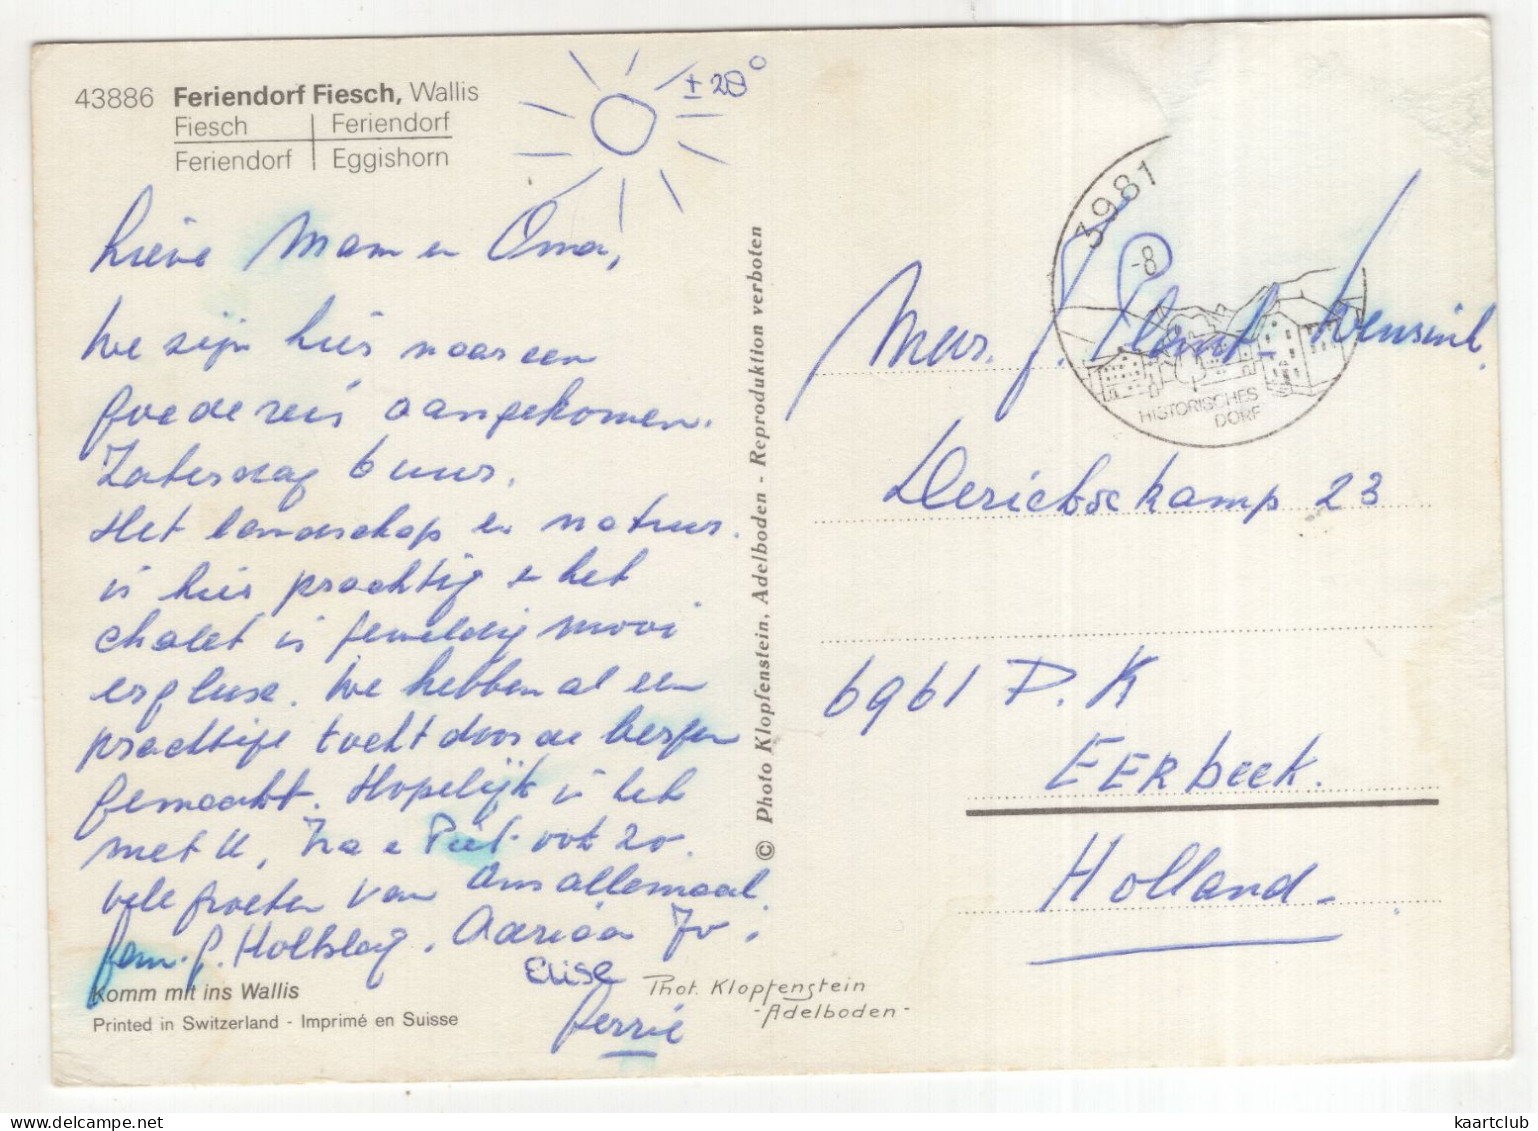 43886 Feriendorf Fiesch, Wallis
Fiesch | Feriendorf
Feriendorf | Eggishorn
± 28°
Lieve Mam en Oma,
We zijn hier naar een
goede reis aangekomen.
Zaterdag 6 uur.
Het landschap en natuur
is hier prachtig en het
chalet is geweldig mooi
We hebben al een
prachtige tocht door de bergen
gemaakt. Hopelijk is het
met U, Ina e Piet ook zo.
Vele groeten van Ons allemaal.
fam. G. Holtslag. Adriaan Jo,
Elise
Gerrie
Komm mit ins Wallis
Printed in Switzerland - Imprimé en Suisse
Phot. Klopfenstein
-Adelboden-
© Photo Klopfenstein, Adelboden - Reproduktion verboten
3981
-8
HISTORISCHES
DORF
Mevr. J.
Derickskamp 23
6961 D.K
EERbeek.
Holland-
kaartclub